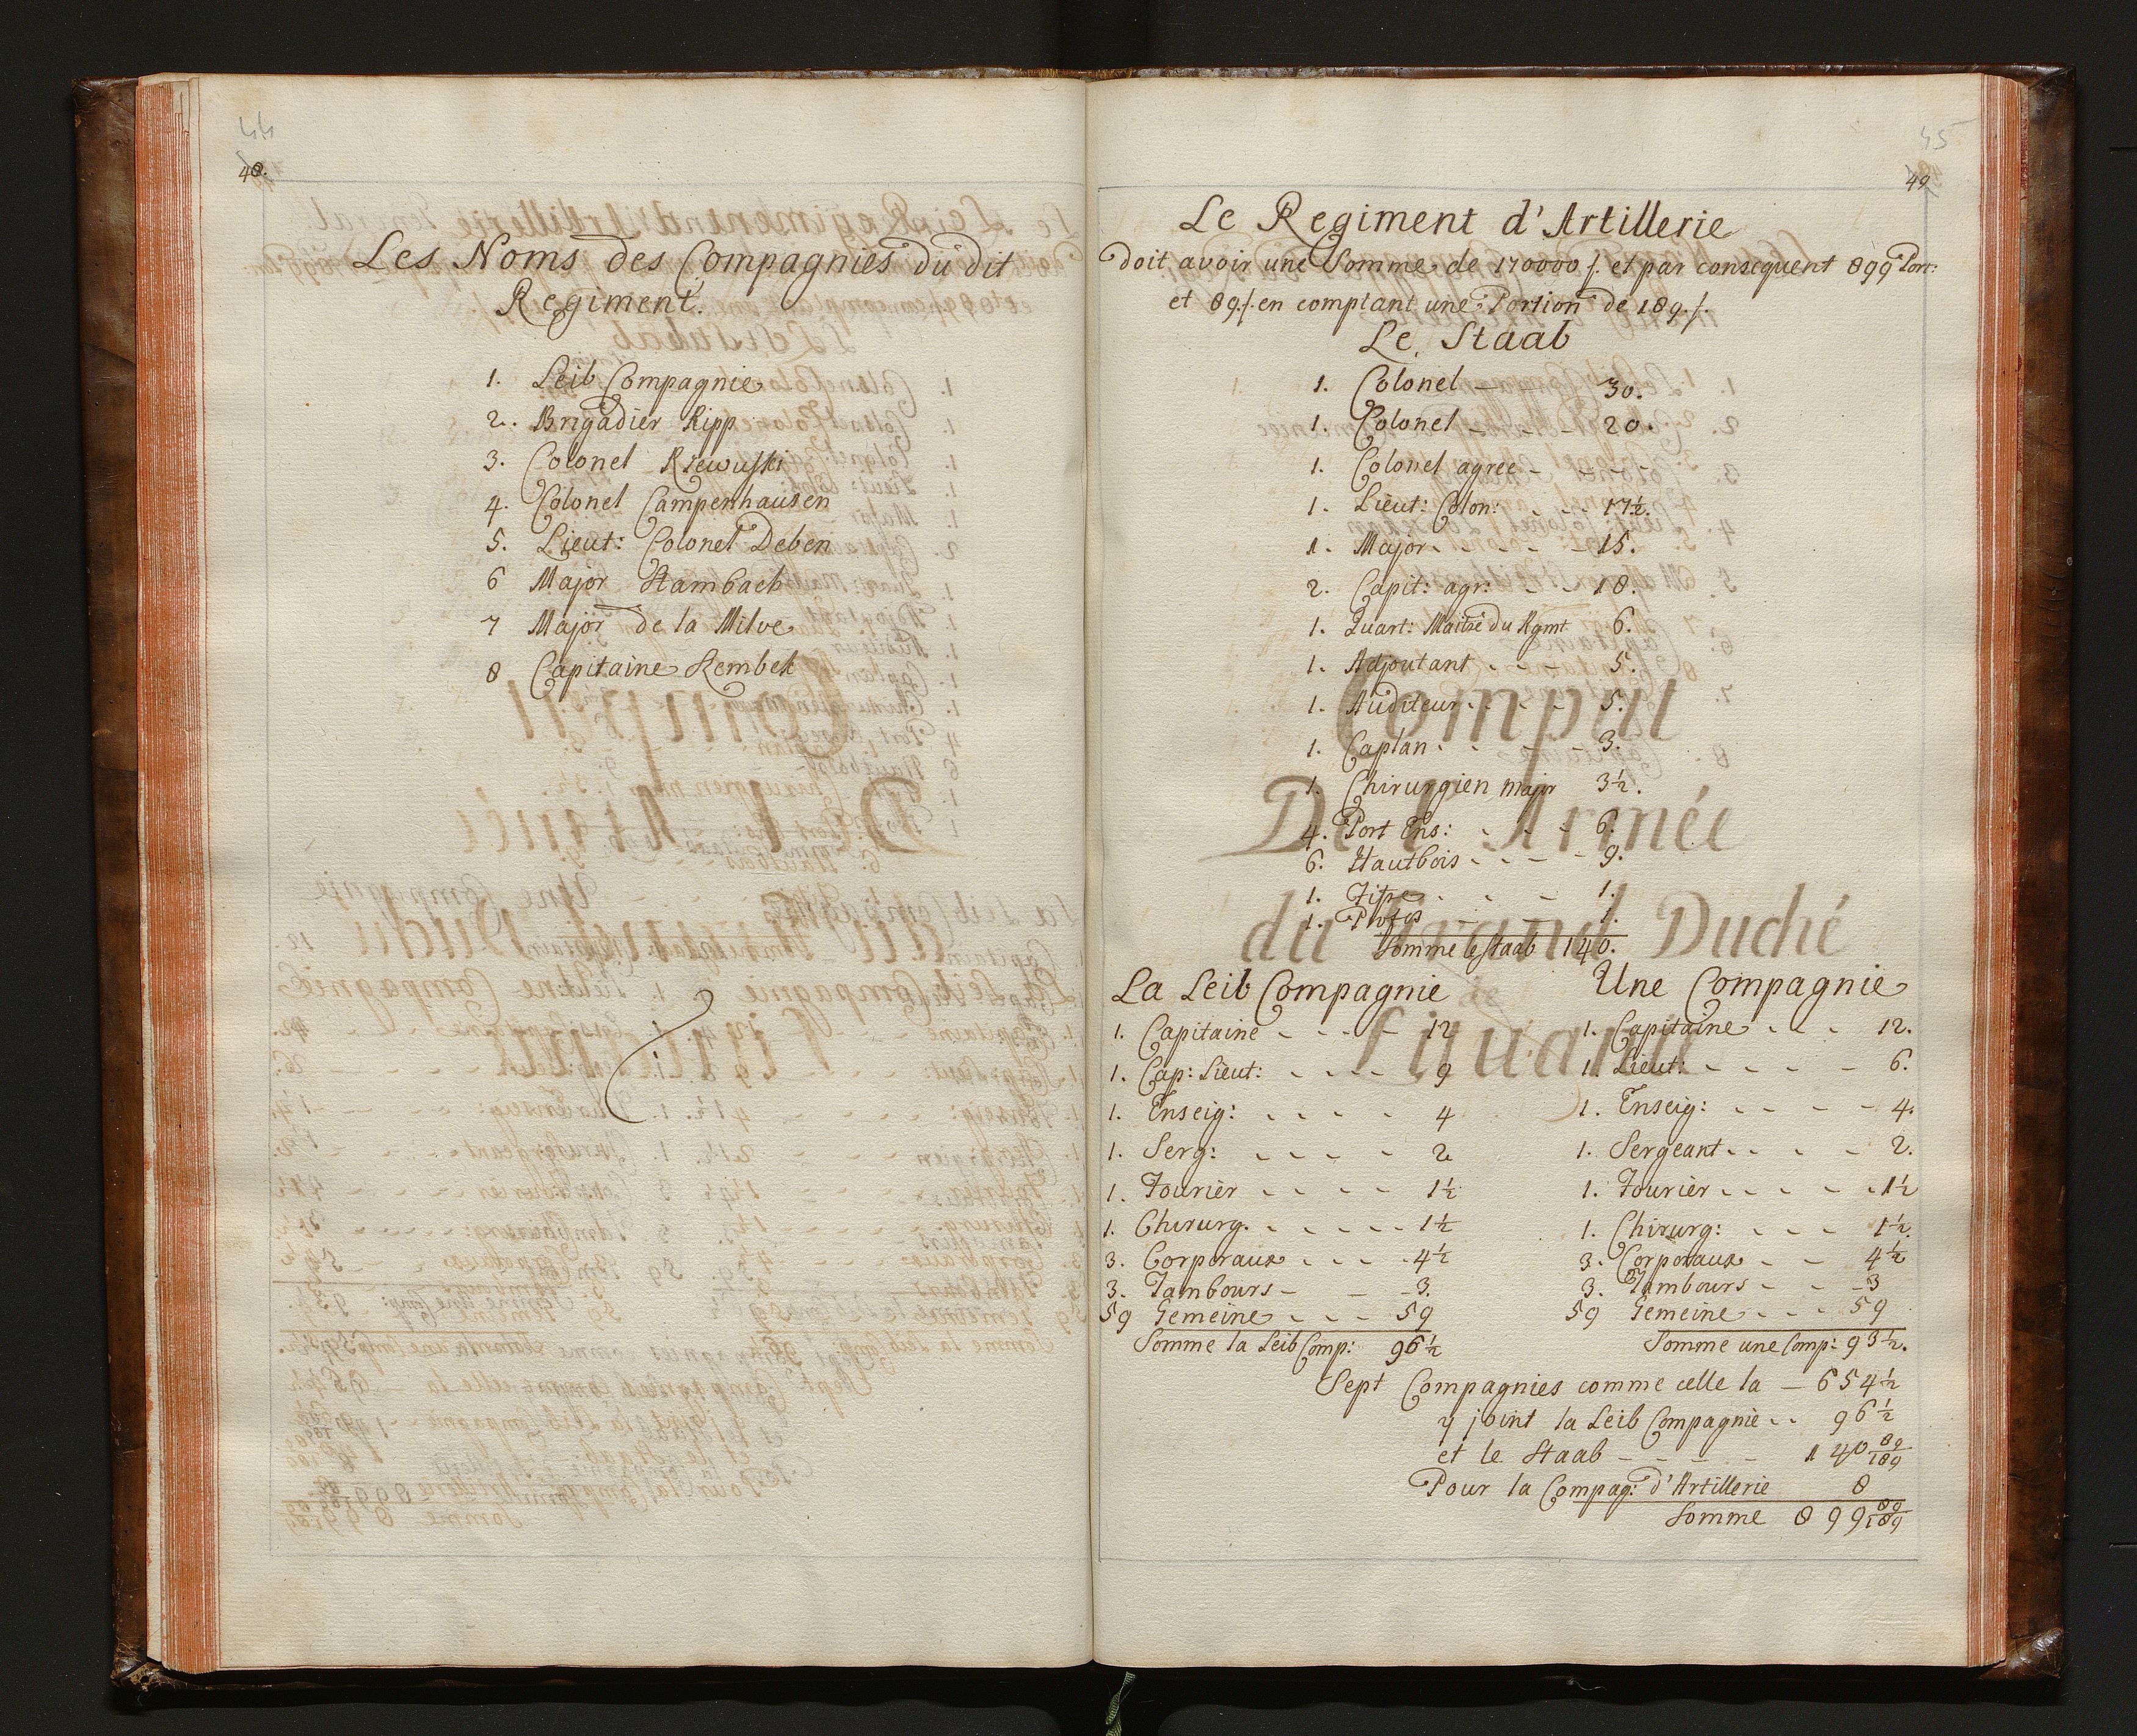 44
48.
Les Noms des Compagnies du dit
Regiment.
1. Leib Compagnie
2. Brigadier Ripp
3. Colonel Riewuski
4. Colonel Campenhausen
5. Lieut: Colonel Deben
6 Major Stambach
7 Major de la Milve
8 Capitaine Rembek
45
49
Le Regiment d'Artillerie
doit avoir une Somme de 170000 f. et par consequent 899 Port:
et 89 f. en comptant une Portion de 189. f.
Le Staab
1. Colonel - 30.
1. Colonel - - - 20.
1. Colonel agree - - - -
1. Lieut: Colon: - - - 17½.
1. Major - - - - 15.
2. Capit: agr: - - 18.
1. Quart: Maitre du Rgmt 6.
1. Adjoutant - - - 5.
1. Auditeur - - - 5.
1. Caplan - - - - 3.
1. Chirurgien major 3½.
4. Port Ens: - - - 6.
6. Hautbois - - - - 9.
1. - - - 1.
1. Profos - - 1.
Somme le Staab 140.
La Leib Compagnie
1. Capitaine - - - - 12
1. Cap: Lieut: - - - - 9
1. Enseig: - - - - 4
1. Serg: - - - - 2
1. Fourier - - - - 1½
1. Chirurg. - - - - - 1½
3. Corporaux - - - - 4½
3. Tambours - - - 3.
59 Gemeine - - - 59
Somme la Leib Comp: 96½
Une Compagnie
1. Capitaine - - - 12.
1. Lieut: - - - - - 6.
1. Enseig: - - - - 4.
1. Sergeant - - - - 2.
1. Fourier - - - - - 1½
1. Chirurg: - - - 1½.
3. Corporaux - - 4½
3. Tambours - - - 3
59 Gemeine - - - 59
Somme une Comp: 93½.
Sept Compagnies comme celle la - 654½
y joint la Leib Compagnie - - 96½
et le Staab - - - - 140 89/189
Pour la Compag: d'Artillerie 8
Somme 899 89/189
Comput
De l'Armée
du Grand Duché
de